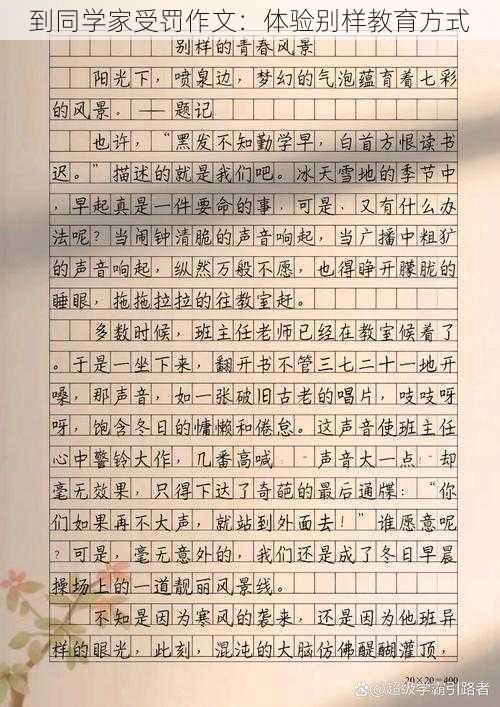 到同学家受罚作文：体验别样教育方式
别样的青春风景
阳光下，喷泉边，梦幻的气泡蕴育着七彩
的风景。——题记
也许，“黑发不知勤学早，白首方恨读书
迟。”描述的就是我们吧。冰天雪地的季节中
，早起真是一件要命的事，可是，又有什么办
法呢？当闹钟清脆的声音响起，当广播中粗犷
的声音响起，纵然万般不愿，也得睁开朦胧的
睡眼，拖拖拉拉的往教室赶。
多数时候，班主任老师已经在教室候着了
。于是一坐下来，翻开书不管三七二十一地开
嗓，那声音，如一张破旧古老的唱片，吱吱呀
呀，饱含冬日的慵懒和倦怠。这声音使班主任
心中警铃大作，几番高喊 声音大一点 却
毫无效果，只得下达了奇葩的最后通牒：“你
们如果再不大声，就站到外面去！”谁愿意呢
？可是，毫无意外的，我们还是成了冬日早晨
操场上的一道靓丽风景线。
不知是因为寒风的袭来，还是因为他班异
样的眼光，此刻，混沌的大脑仿佛醍醐灌顶，
20×20=400
@超级学霸引路者